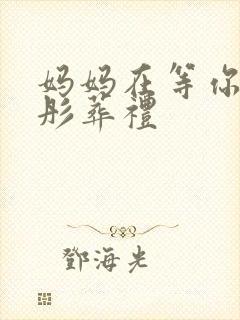 妈妈在等你
彤葬禮
鄧海光